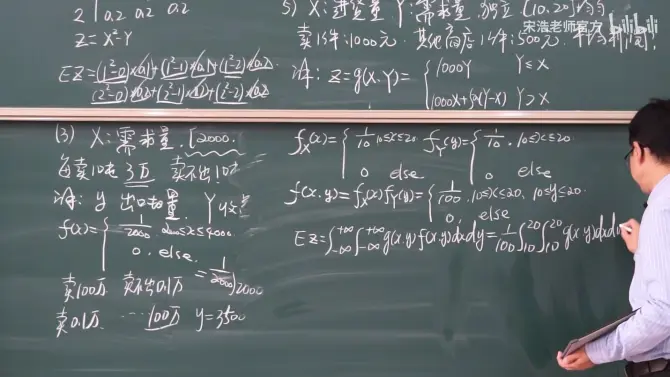 2 | 0.2 0.2
Z=X²-Y
EZ=(1²-0)×0.1+(1²-1)×0.1+(1²-2)×0.2
(2²-0)×0.2+(2²-1)×0.2+(2²-2)×0.2
5) X:进货量 Y:需求量. 独立 [10,20]均匀
卖1件:1000元. 其他商店1件:500元. 平均利润
解: Z=g(X,Y)= { 1000Y Y≤X
1000X+500(Y-X) Y>X
宋浩老师官方 bilibili
(3) X:需求量. [2000,
每卖10t 3万 卖不出10t
解: y 出口量. Y收益
f(x)= { 1/2000 2000≤x≤4000
0. else.
= 1/2000
卖100万 卖不出0.1万
卖0.1万 … 100万 y=3500
f_X(x)= { 1/10 10≤x≤20 f_Y(y)= { 1/10. 10≤y≤20.
0 else 0 else
f(x.y)=f_X(x)f_Y(y)= { 1/100 .10≤x≤20, 10≤y≤20.
0, else
EZ=∫_{-∞}^{+∞}∫_{-∞}^{+∞}g(x.y)f(x.y)dxdy=1/100∫_{10}^{20}∫_{10}^{20}g(x.y)dxdy